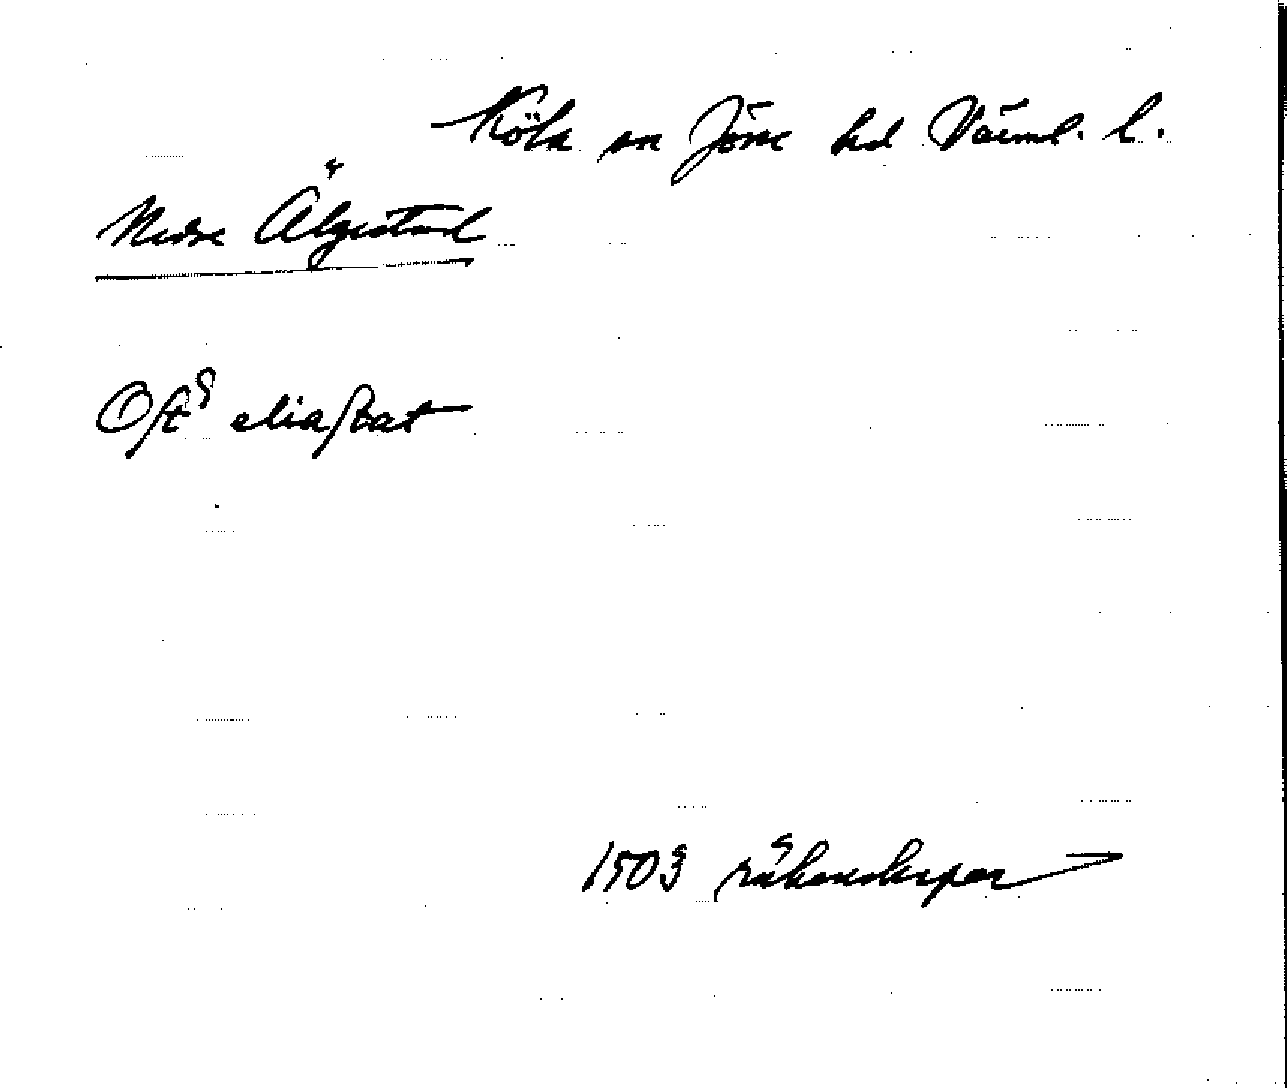 Köla sn Jösse hd Värml. l.
Nedre Älgestad
Oftꝭ eliastat
1503 räkenskaper